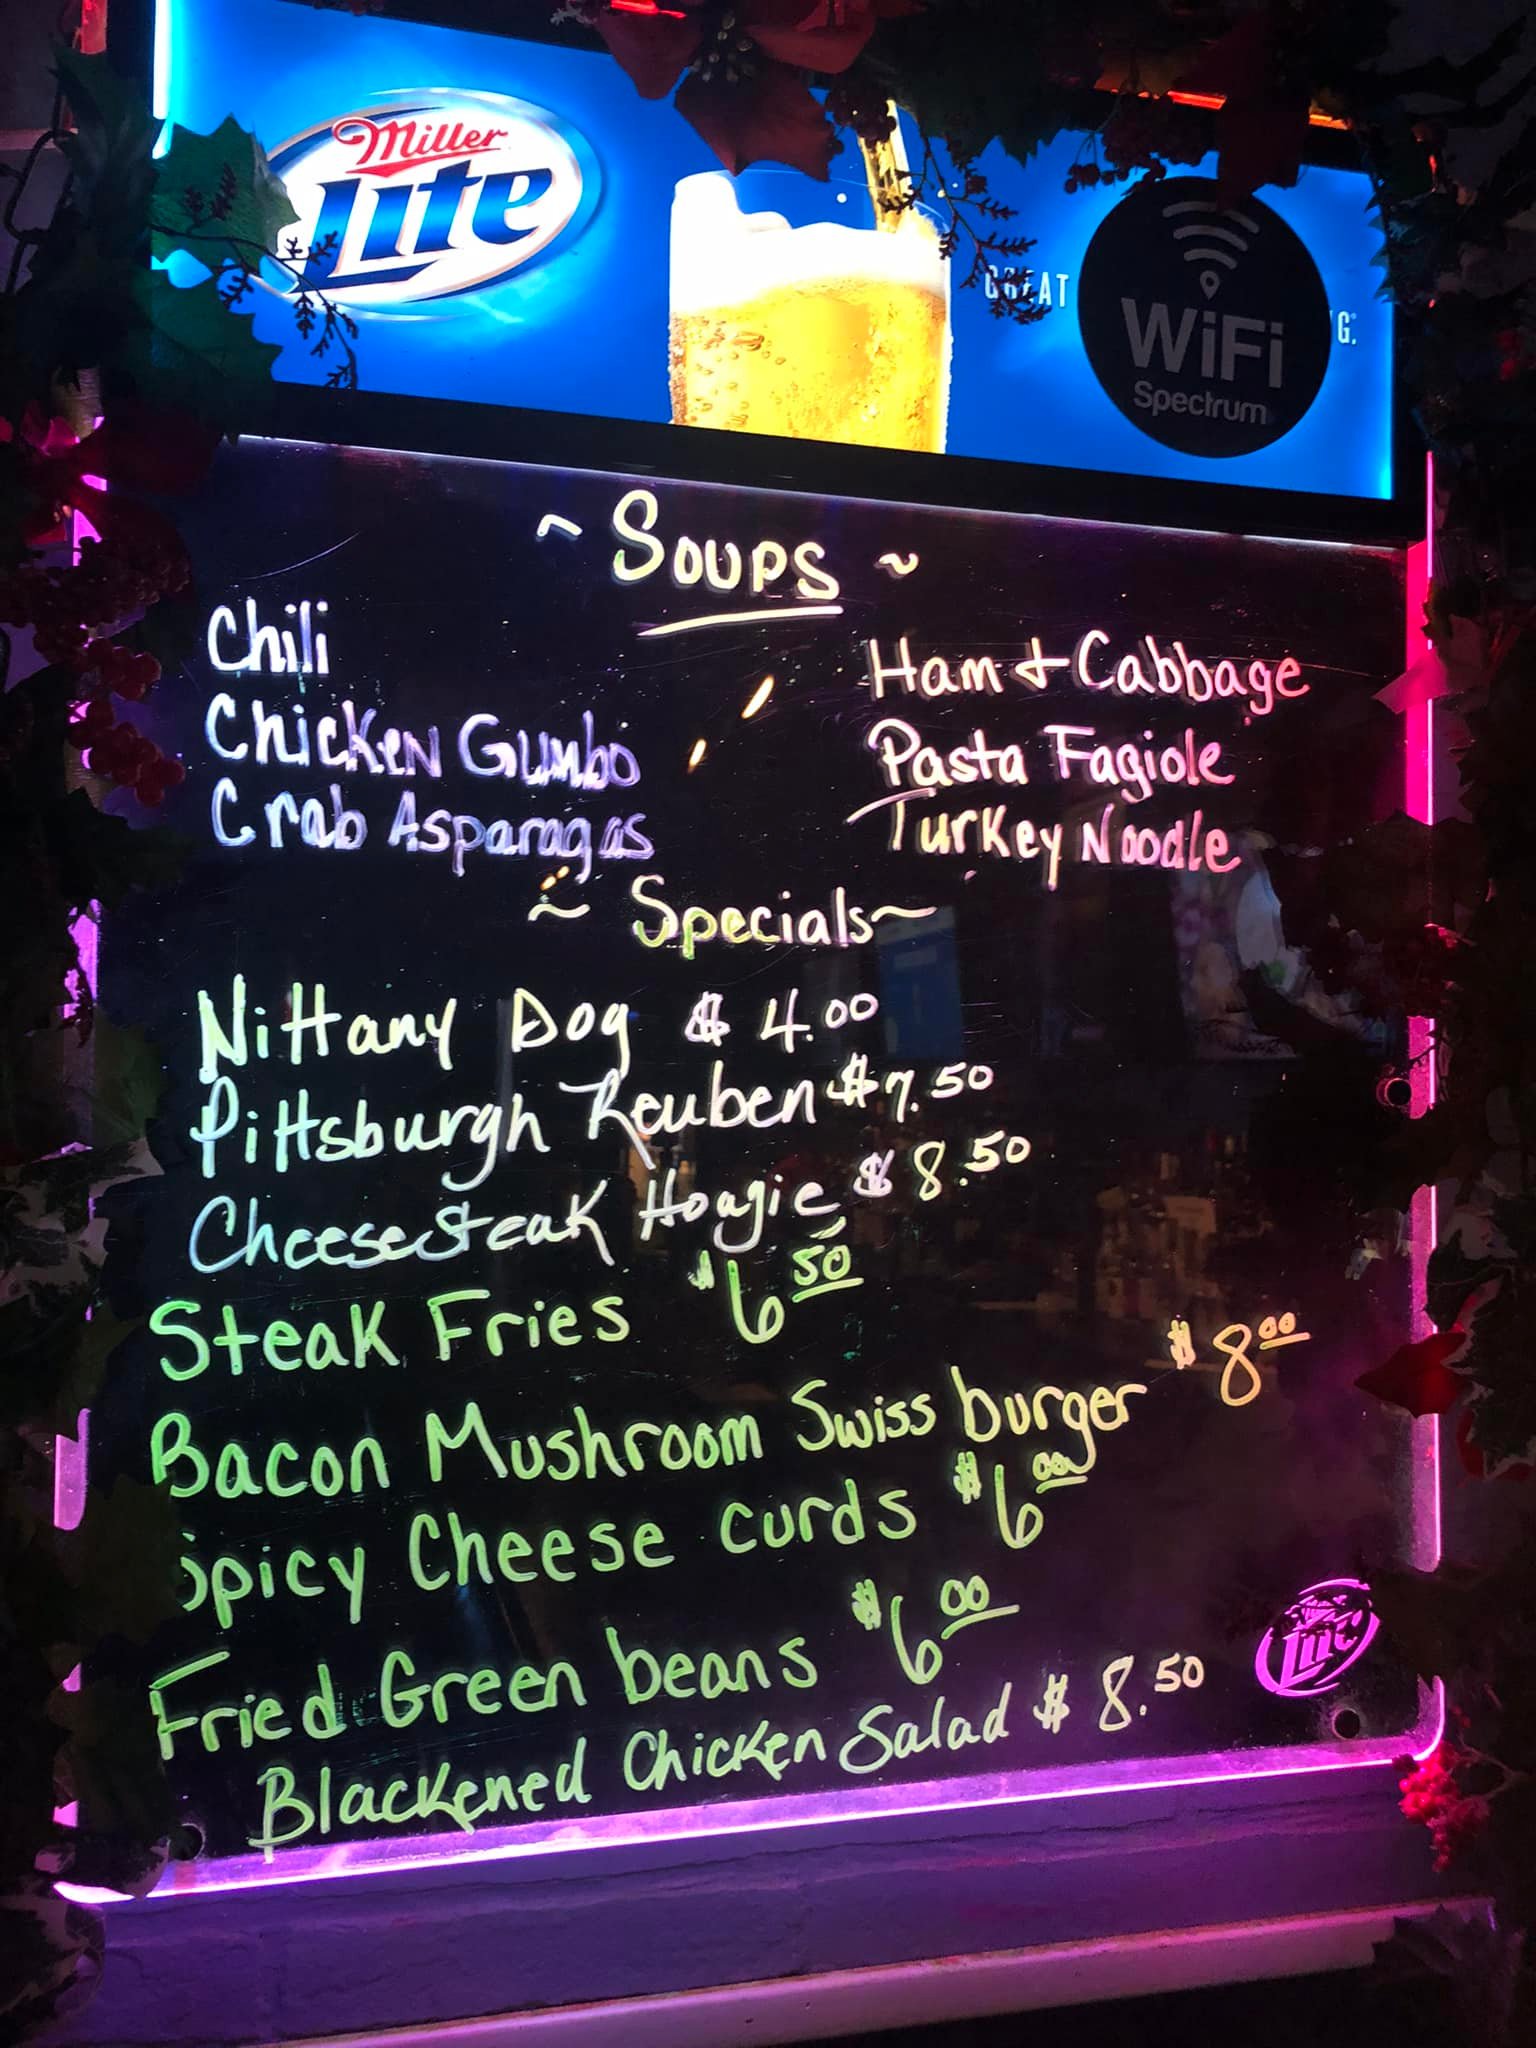 Miller
Lite
GREAT
G.
WiFi
Spectrum
~ Soups ~
Chili
Chicken Gumbo
Crab Asparagas
Ham + Cabbage
Pasta Fagiole
Turkey Noodle
~ Specials ~
Nittany Dog $ 4.00
Pittsburgh Reuben $ 7.50
Cheesesteak Hoagie $ 8.50
Steak Fries $6 50
Bacon Mushroom Swiss burger $8 00
Spicy Cheese curds $6 00
Fried Green beans $6 00
Blackened Chicken Salad $ 8.50
Lite